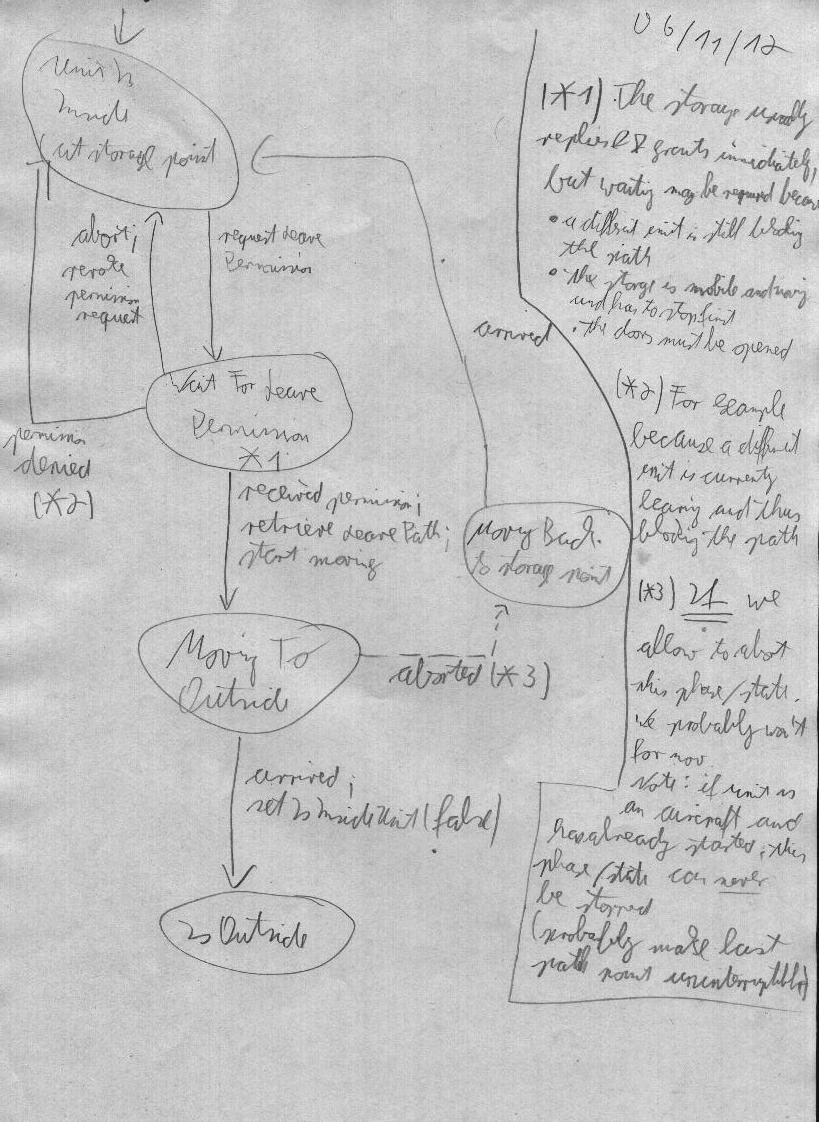 06/11/12
Unit Is
Inside
(at storage point
abort;
revoke
permission
request
request Leave
Permission
Wait For Leave
Permission
*1
permission
denied
(*2)
received permission;
retrieve Leave Path;
start moving
Moving To
Outside
arrived;
set IsInsideUnit(false)
Is Outside
aborted (*3)
Moving Back
to storage point
arrived
(*1) The storage usually
replies & grants immediately,
but waiting may be required because
• a different unit is still blocking
the path
• the storage is mobile and moving
and has to stop first
• the doors must be opened
(*2) For example
because a different
unit is currently
leaving and thus
blocking the path
(*3) If we
allow to abort
this phase/state.
We probably won't
for now.
Note: if unit is
an aircraft and
has already started, this
phase/state can never
be stopped
(probably make last
path point uninterruptible)